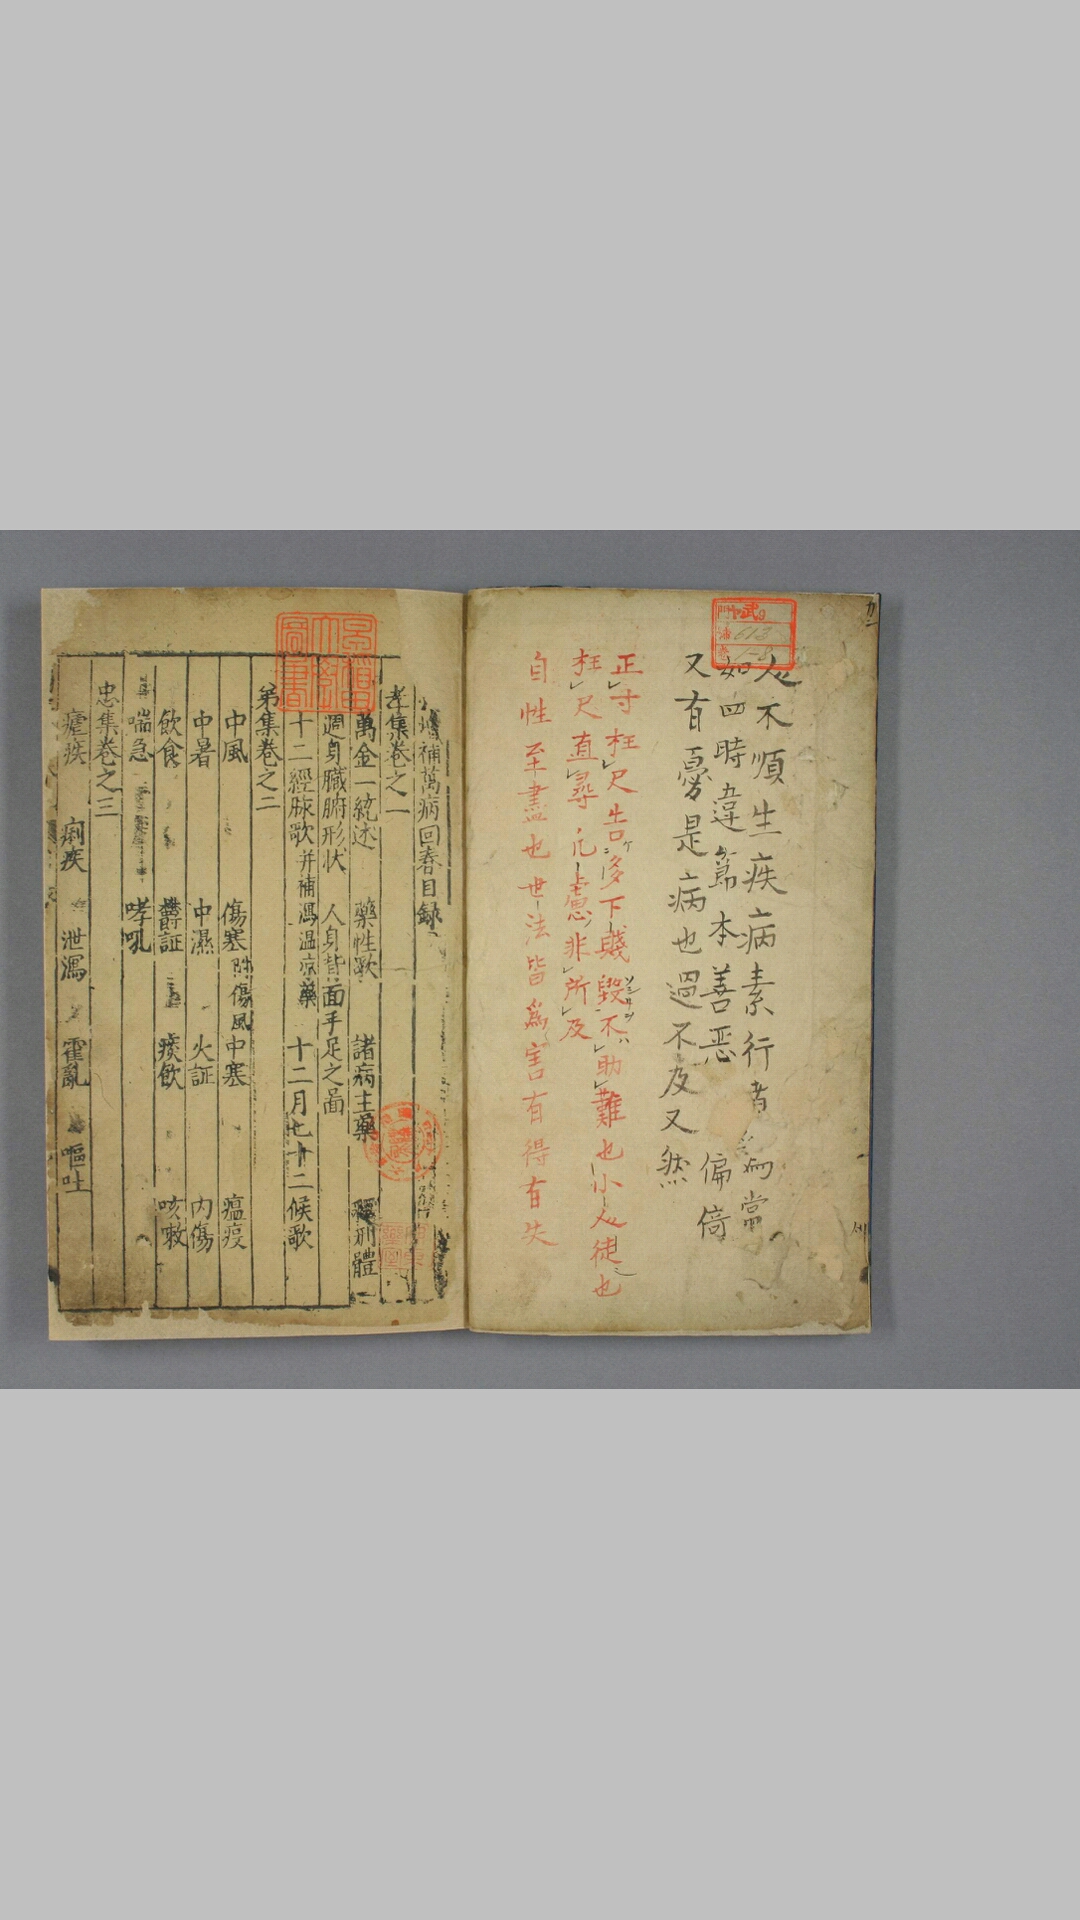 人不順生疾病素行者為當
如四時違節本善恶偏倚
又有憂是病也過不及又然
正寸枉尺告多下賤毀不助難也小人徒也
枉尺直尋凡慮非所及
自性至盡也世法皆爲害有得有失
增補萬病回春目録
孝集卷之一
萬金一統述 藥性歌 諸病主藥 形體
週身臟腑形状 人身背面手足之啚
十二經脉歌 并補瀉温凉藥 十二月七十二候歌
弟集卷之二
中風 傷寒 附傷風 中寒 瘟疫
中暑 中濕 火証 内傷
飲食 欝証 痰飲 咳嗽
喘急 哮吼
忠集卷之三
瘧疾 痢疾 泄瀉 霍亂 嘔吐